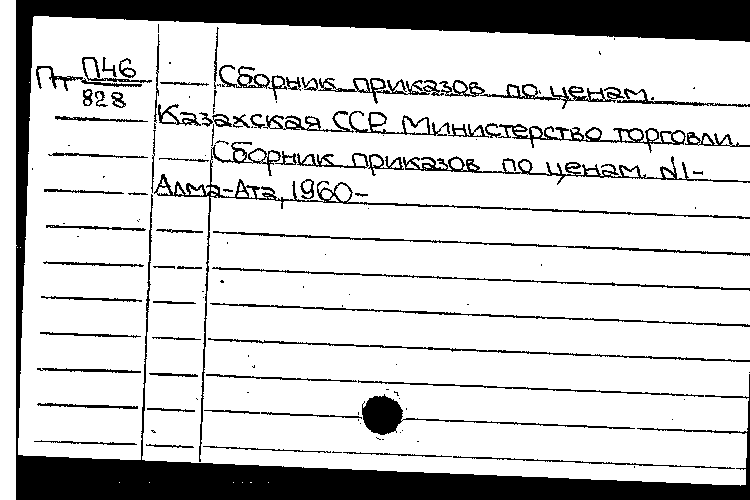 Пт П46
828
Сборник приказов по ценам.
Казахская ССР. Министерство торговли.
Сборник приказов по ценам. №1-
Алма-Ата, 1960-